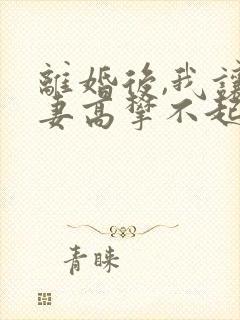 離婚後,我讓
妻高攀不起
青睞